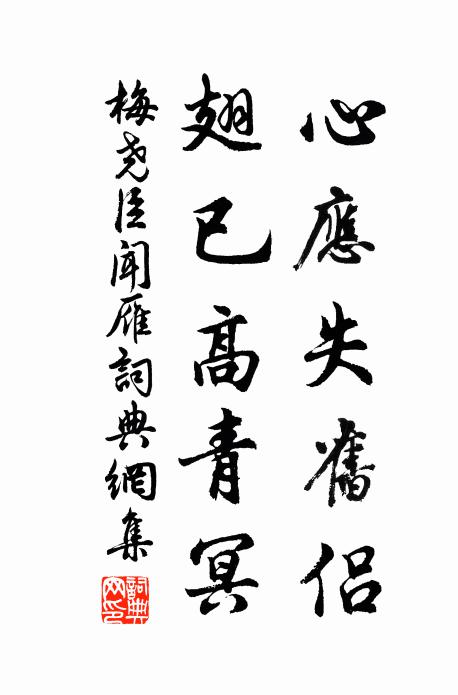 心應失舊侶
翅已高青冥
梅尧臣聞雁詞典網集
詞典網印